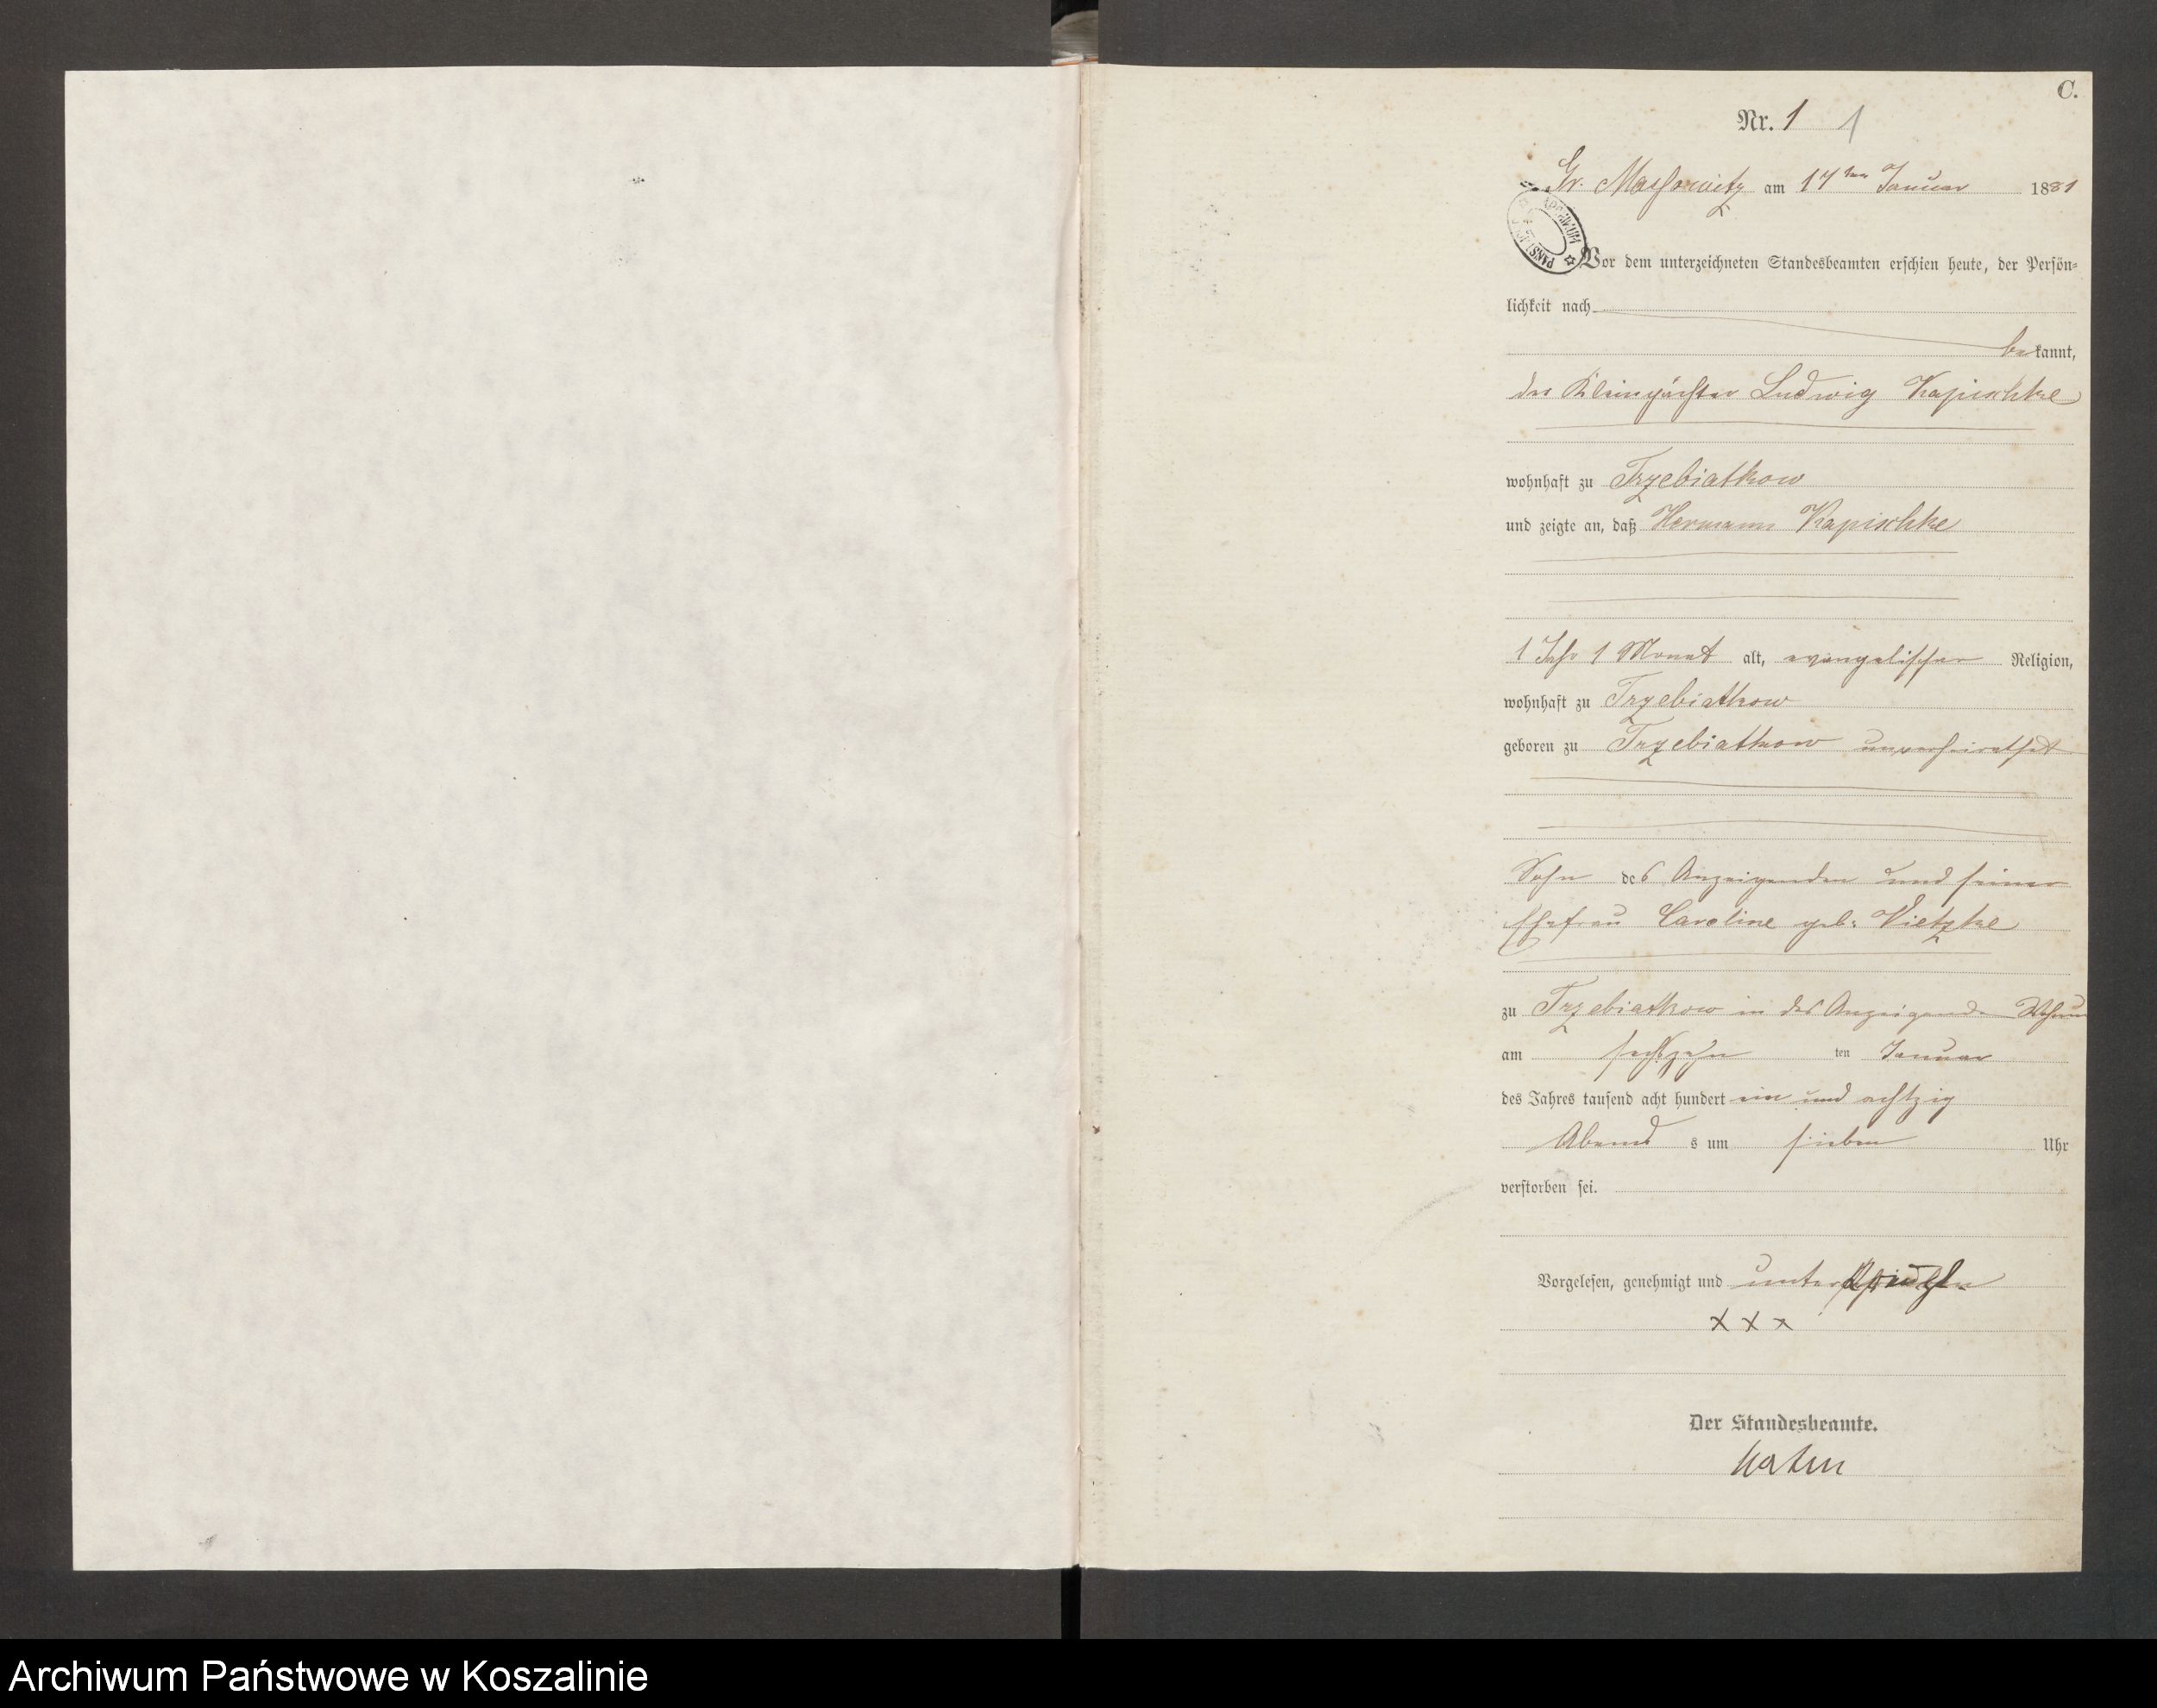 C.
Nr. 1 1
Gr. Massowitz am 17ten Januar 1881
ARCHIWUM PAŃSTW
Vor dem unterzeichneten Standesbeamten erschien heute, der Persön-
lichkeit nach
bekannt,
der Kleinpächter Ludwig Kapischke
wohnhaft zu Trzebiatkow
und zeigte an, daß Hermann Kapischke
1 Jahr 1 Monat alt, evangelischer Religion,
wohnhaft zu Trzebiatkow
geboren zu Trzebiatkow unverheirathet
Sohn des Anzeigenden und seiner
Ehefrau Caroline geb: Vietzke
zu Trzebiatkow in des Anzeigenden
am sechszehn ten Januar
des Jahres tausend acht hundert ein und achtzig
Abend s um sieben Uhr
verstorben sei.
Vorgelesen, genehmigt und
x x x
Der Standesbeamte.
Archiwum Państwowe w Koszalinie